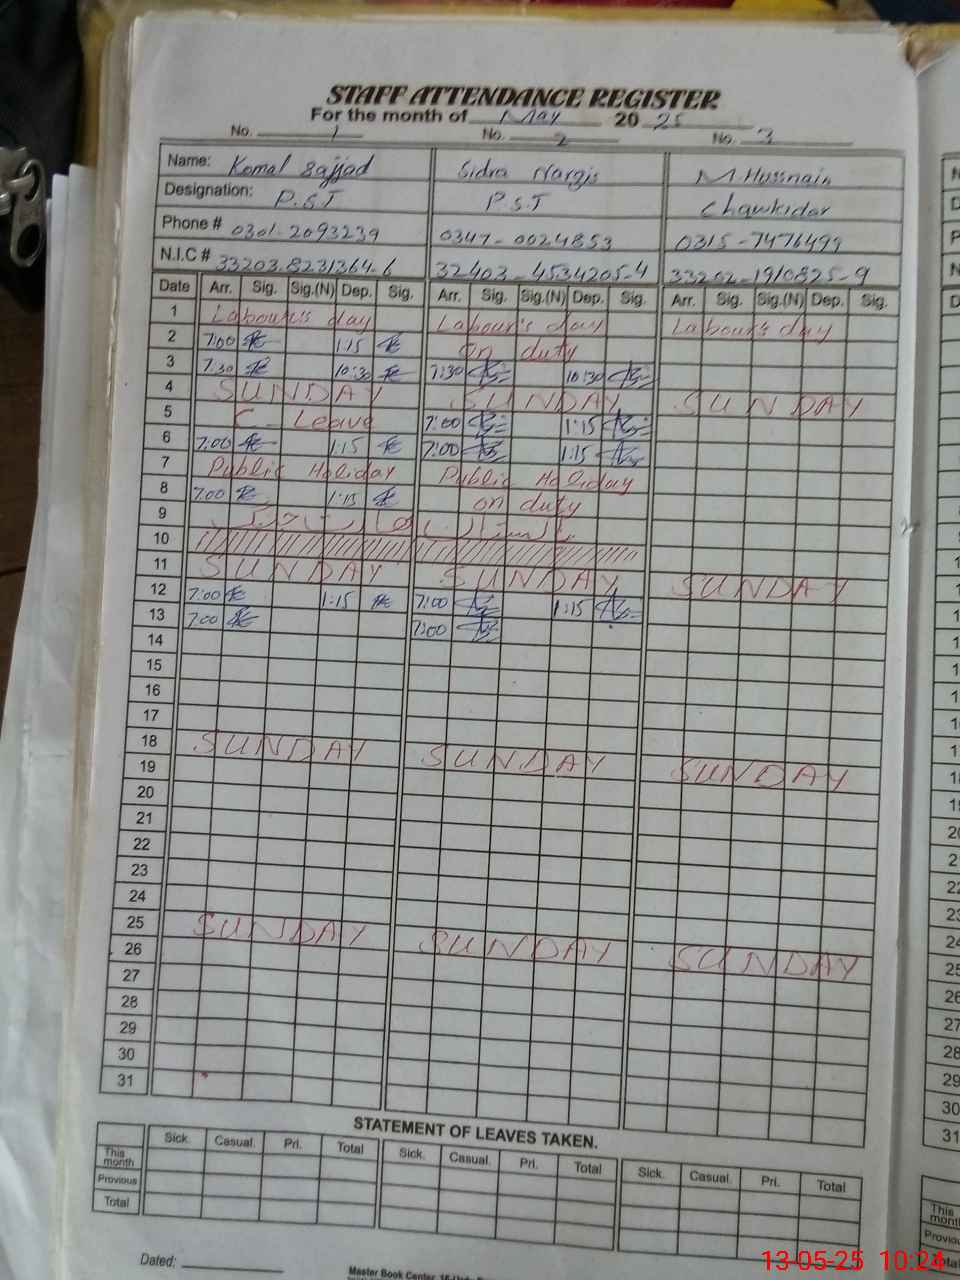 STAFF ATTENDANCE REGISTER
For the month of May 20 25
No. 1 No. 2 No. 3
Name: Komal Sajjad Sidra Nargis M. Hussnain
Designation: P.S.T P.S.T Chawkidar
Phone # 0301-2093239 0347-0024853 0315-7476499
N.I.C # 33203-8231364-6 32403-4534205-4 33202-1910825-9
Date Arr. Sig. Sig.(N) Dep. Sig. Arr. Sig. Sig.(N) Dep. Sig. Arr. Sig. Sig.(N) Dep. Sig.
1 Labour's day Labour's day Labour's day
2 7:00 1:15 on duty
3 7:30 10:30 7:30 10:30
4 SUNDAY SUNDAY SUNDAY
5 C. Leave 7:00 1:15
6 7:00 1:15 7:00 1:15
7 Public Holiday Public Holiday
8 7:00 1:15 on duty
9
10
11 SUNDAY SUNDAY SUNDAY
12 7:00 1:15 7:00 1:15
13 7:00 7:00
14
15
16
17
18 SUNDAY SUNDAY SUNDAY
19
20
21
22
23
24
25 SUNDAY SUNDAY SUNDAY
26
27
28
29
30
31
STATEMENT OF LEAVES TAKEN.
Sick. Casual. Pri. Total Sick. Casual. Pri. Total Sick. Casual. Pri. Total
This month
Previous
Total
Dated:
Master Book Center
13-05-25 10:24